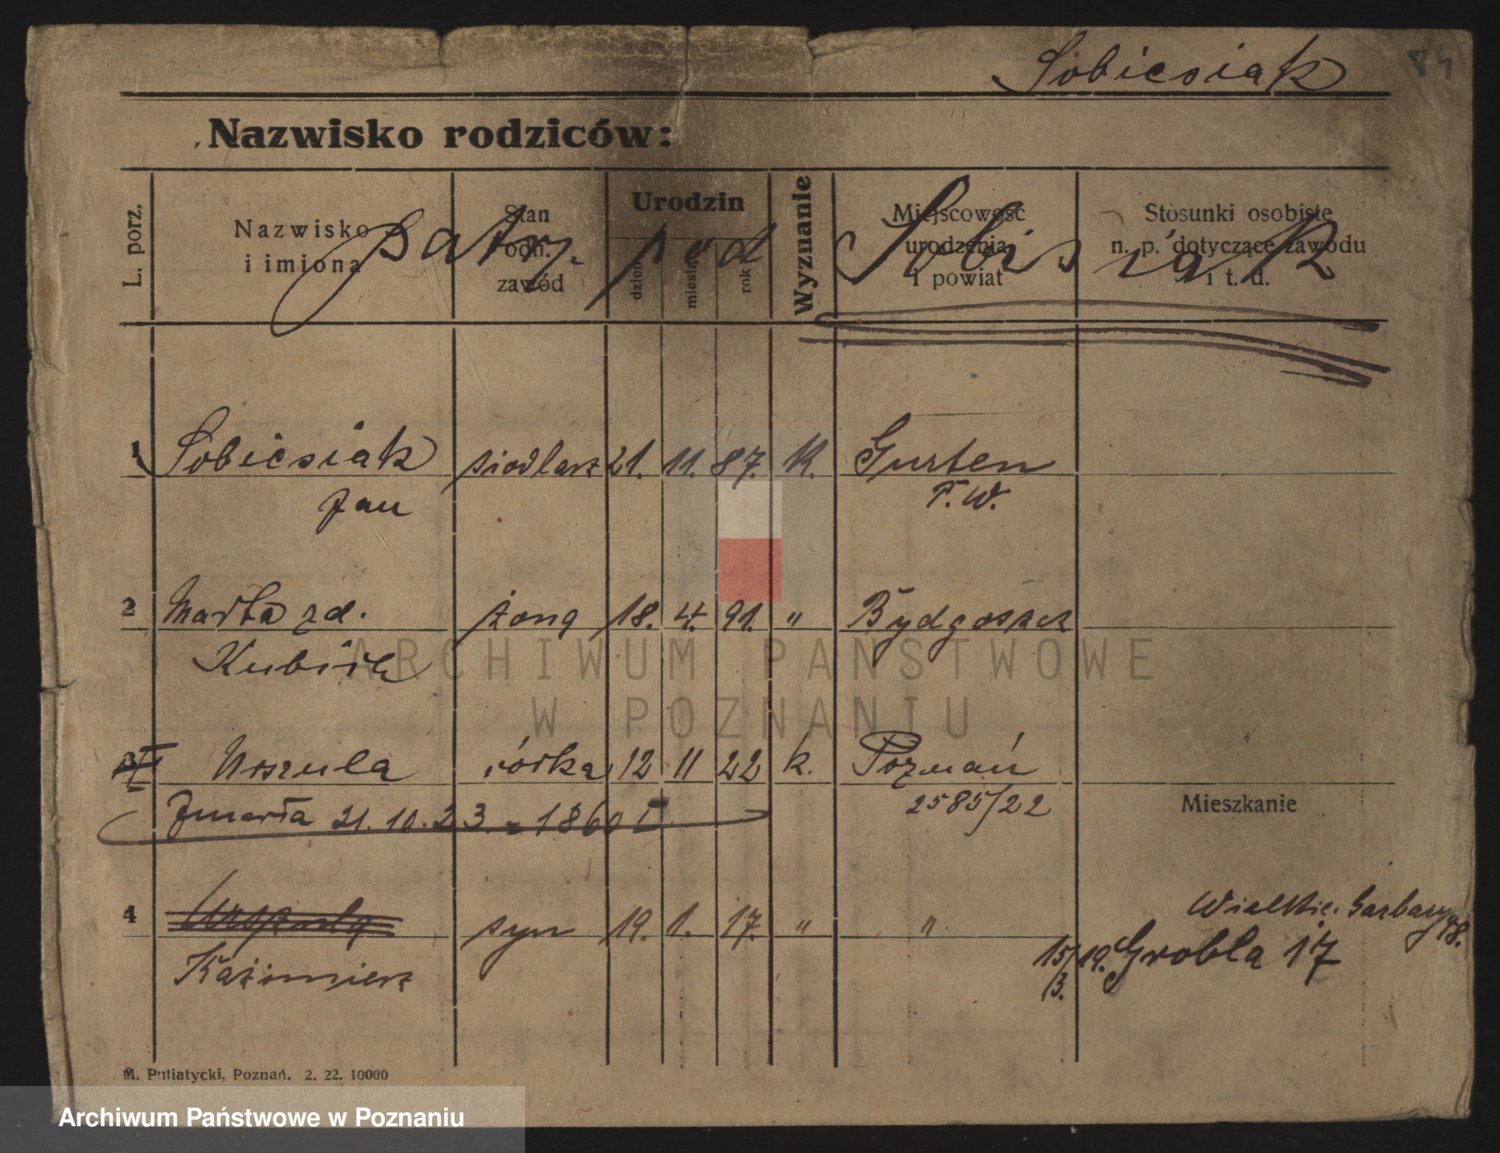 Sobiesiak
84
Nazwisko rodziców:
L. porz.
Nazwisko i imiona
Stan odn. zawód
Urodzin
dzień
miesiąc
rok
Wyznanie
Miejscowość urodzenia i powiat
Stosunki osobiste n. p. dotyczące zawodu i t. d.
patrz pod Sobisiak
1 Sobiesiak siodlarz 21. 11. 87. K. Gurten
Jan F. W.
2 Marta zd. żona 18. 4. 91. " Bydgoszcz
Kubiak
3 Urszula córka 12 11 22 k. Poznań
Zmarła 21.10.23. - 1860 I 2585/22
Mieszkanie
4 Urszula syn 19. 1. 17. " "
Kaźimierz
Wielkie. Garbary 48.
15/3. 19. Grobla 17
M. Putiatycki, Poznań. 2. 22. 10000
ARCHIWUM PAŃSTWOWE
W POZNANIU
Archiwum Państwowe w Poznaniu